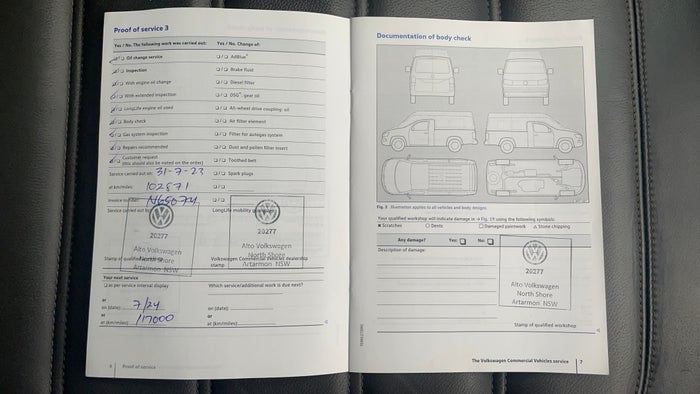 Proof of service 3
Yes / No. The following work was carried out: Yes / No. Change of:
Oil change service AdBlue®
Inspection Brake fluid
With engine oil change Diesel filter
With extended inspection DSG®: gear oil
LongLife engine oil used All-wheel drive coupling: oil
Body check Air filter element
Gas system inspection Filter for autogas system
Repairs recommended Dust and pollen filter insert
Customer request
(this should also be noted on the order) Toothed belt
Service carried out on: 31-7-23 Spark plugs
at km/miles: 102871
Invoice number:
Service carried out by LongLife mobility
20277 20277
Alto Volkswagen Alto Volkswagen
North Shore North Shore
Artarmon NSW Artarmon NSW
Stamp of qualified Volkswagen Commercial Vehicles dealership
stamp
Your next service
as per service interval display Which service/additional work is due next?
or
on (date): 7/24 or (date):
or or
at (km/miles): 117000 at (km/miles):
6 Proof of service
Documentation of body check
Fig. 3 Illustration applies to all vehicles and body designs.
Your qualified workshop will indicate damage in → Fig. 19 using the following symbols:
Scratches Dents Damaged paintwork Stone chipping
Any damage? Yes: No:
Description of damage:
20277
Alto Volkswagen
North Shore
Artarmon NSW
Stamp of qualified workshop
The Volkswagen Commercial Vehicles service 7